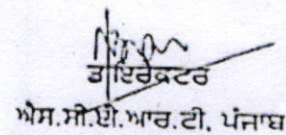 ਡਾਇਰੈਕਟਰ
ਐਸ.ਸੀ.ਈ.ਆਰ.ਟੀ. ਪੰਜਾਬ